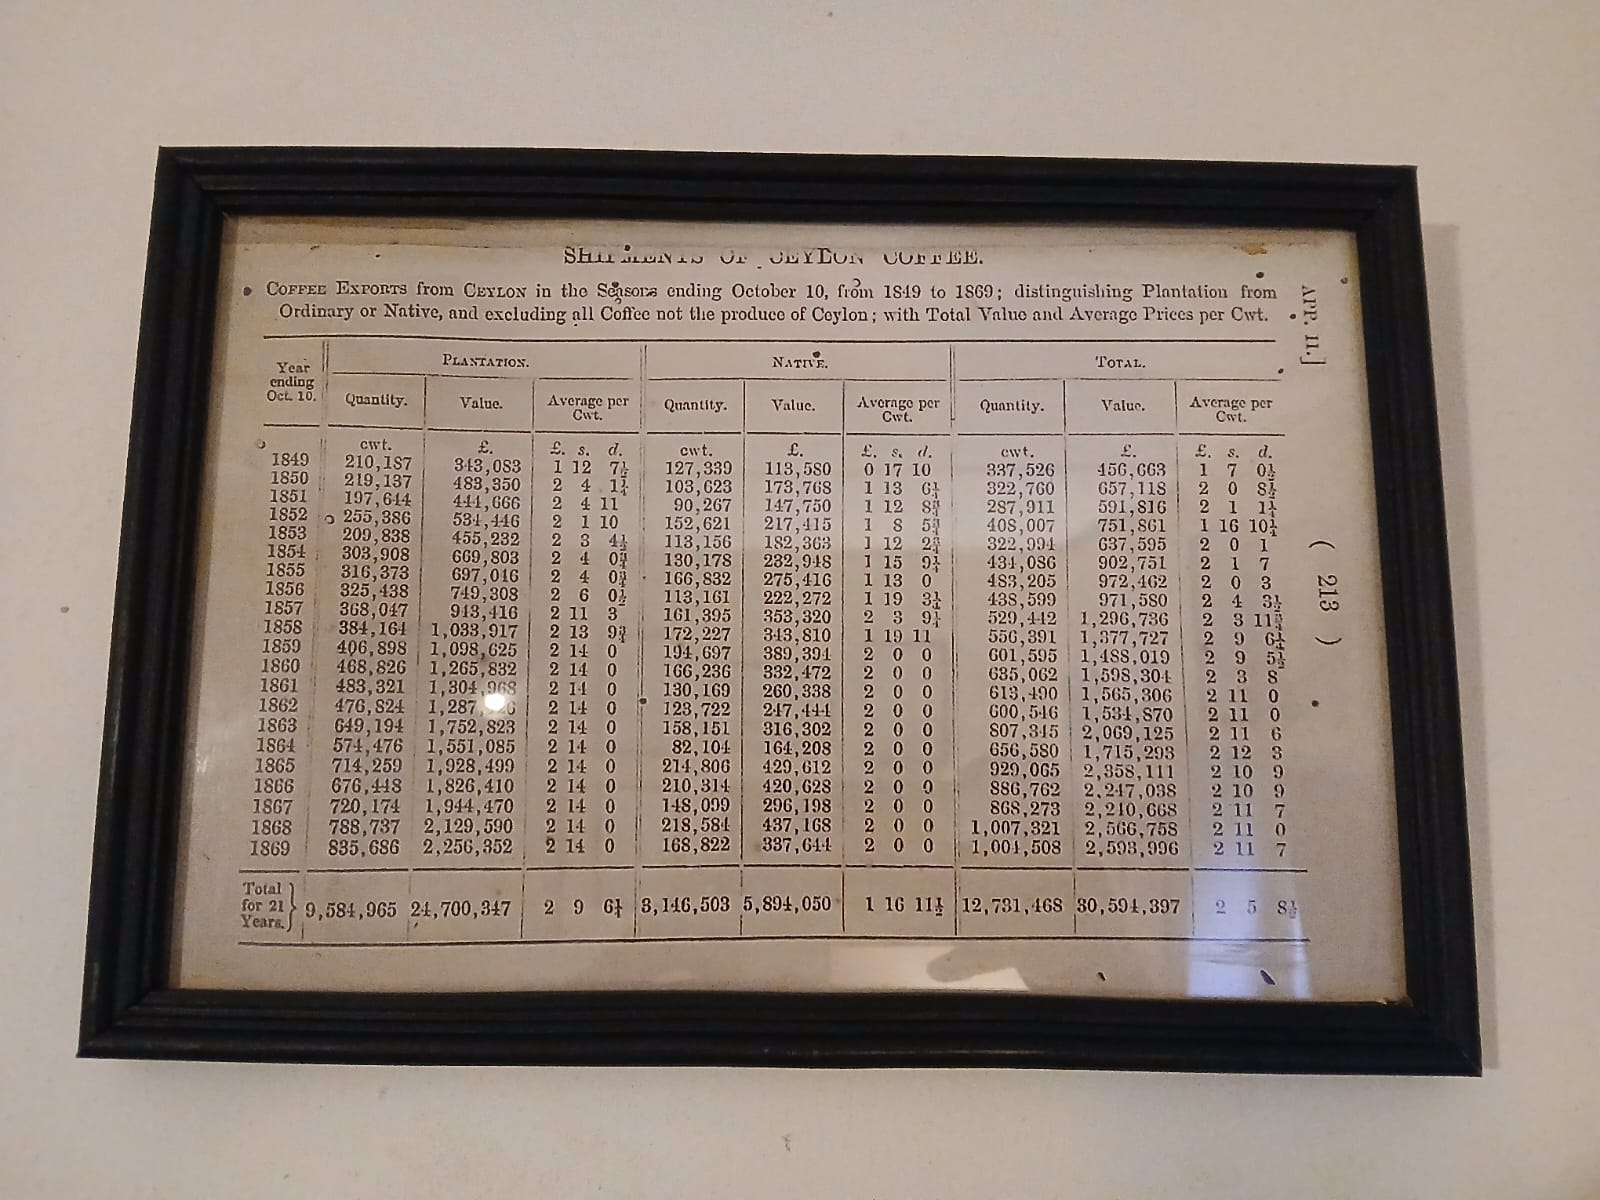 SHIPMENTS OF CEYLON COFFEE.
COFFEE EXPORTS from CEYLON in the Seasons ending October 10, from 1849 to 1869; distinguishing Plantation from
Ordinary or Native, and excluding all Coffee not the produce of Ceylon; with Total Value and Average Prices per Cwt.
APP. II.]
( 213 )
Year ending Oct. 10. PLANTATION. NATIVE. TOTAL.
Quantity. Value. Average per Cwt. Quantity. Value. Average per Cwt. Quantity. Value. Average per Cwt.
cwt. £. £. s. d. cwt. £. £. s. d. cwt. £. £. s. d.
1849 210,187 343,083 1 12 7½ 127,339 113,580 0 17 10 337,526 456,663 1 7 0½
1850 219,137 483,350 2 4 1¼ 103,623 173,768 1 13 6¼ 322,760 657,118 2 0 8½
1851 197,644 444,066 2 4 11 90,267 147,750 1 12 8¾ 287,911 591,816 2 1 1¼
1852 255,386 534,446 2 1 10 152,621 217,415 1 8 5¾ 408,007 751,861 1 16 10¼
1853 209,838 455,232 2 3 4½ 113,156 182,363 1 12 2¾ 322,994 637,595 2 0 1
1854 303,908 669,803 2 4 0¾ 130,178 232,948 1 15 9¼ 434,086 902,751 2 1 7
1855 316,373 697,046 2 4 0¾ 166,832 275,416 1 13 0 483,205 972,462 2 0 3
1856 325,438 749,308 2 6 0½ 113,161 222,272 1 19 3¼ 438,599 971,580 2 4 3½
1857 368,047 943,416 2 11 3 161,395 353,320 2 3 9¼ 529,442 1,296,736 2 3 11¾
1858 384,164 1,033,917 2 13 9¾ 172,227 343,810 1 19 11 556,391 1,377,727 2 9 6¼
1859 406,898 1,098,625 2 14 0 194,697 389,394 2 0 0 601,595 1,488,019 2 9 5½
1860 468,826 1,265,832 2 14 0 166,236 332,472 2 0 0 635,062 1,598,304 2 3 8
1861 483,321 1,304,968 2 14 0 130,169 260,338 2 0 0 613,490 1,565,306 2 11 0
1862 476,824 2 14 0 123,722 247,444 2 0 0 600,546 1,534,870 2 11 0
1863 649,194 1,752,823 2 14 0 158,151 316,302 2 0 0 807,345 2,069,125 2 11 6
1864 574,476 1,551,085 2 14 0 82,104 164,208 2 0 0 656,580 1,715,293 2 12 3
1865 714,259 1,928,499 2 14 0 214,806 429,612 2 0 0 929,065 2,358,111 2 10 9
1866 676,448 1,826,410 2 14 0 210,314 420,628 2 0 0 886,762 2,247,038 2 10 9
1867 720,174 1,944,470 2 14 0 148,099 296,198 2 0 0 868,273 2,210,668 2 11 7
1868 788,737 2,129,590 2 14 0 218,584 437,168 2 0 0 1,007,321 2,566,758 2 11 0
1869 835,686 2,256,352 2 14 0 168,822 337,644 2 0 0 1,004,508 2,593,996 2 11 7
Total for 21 Years. 9,584,965 24,700,347 2 9 6¼ 3,146,503 5,894,050 1 16 11½ 12,731,468 30,594,397 2 5 8½